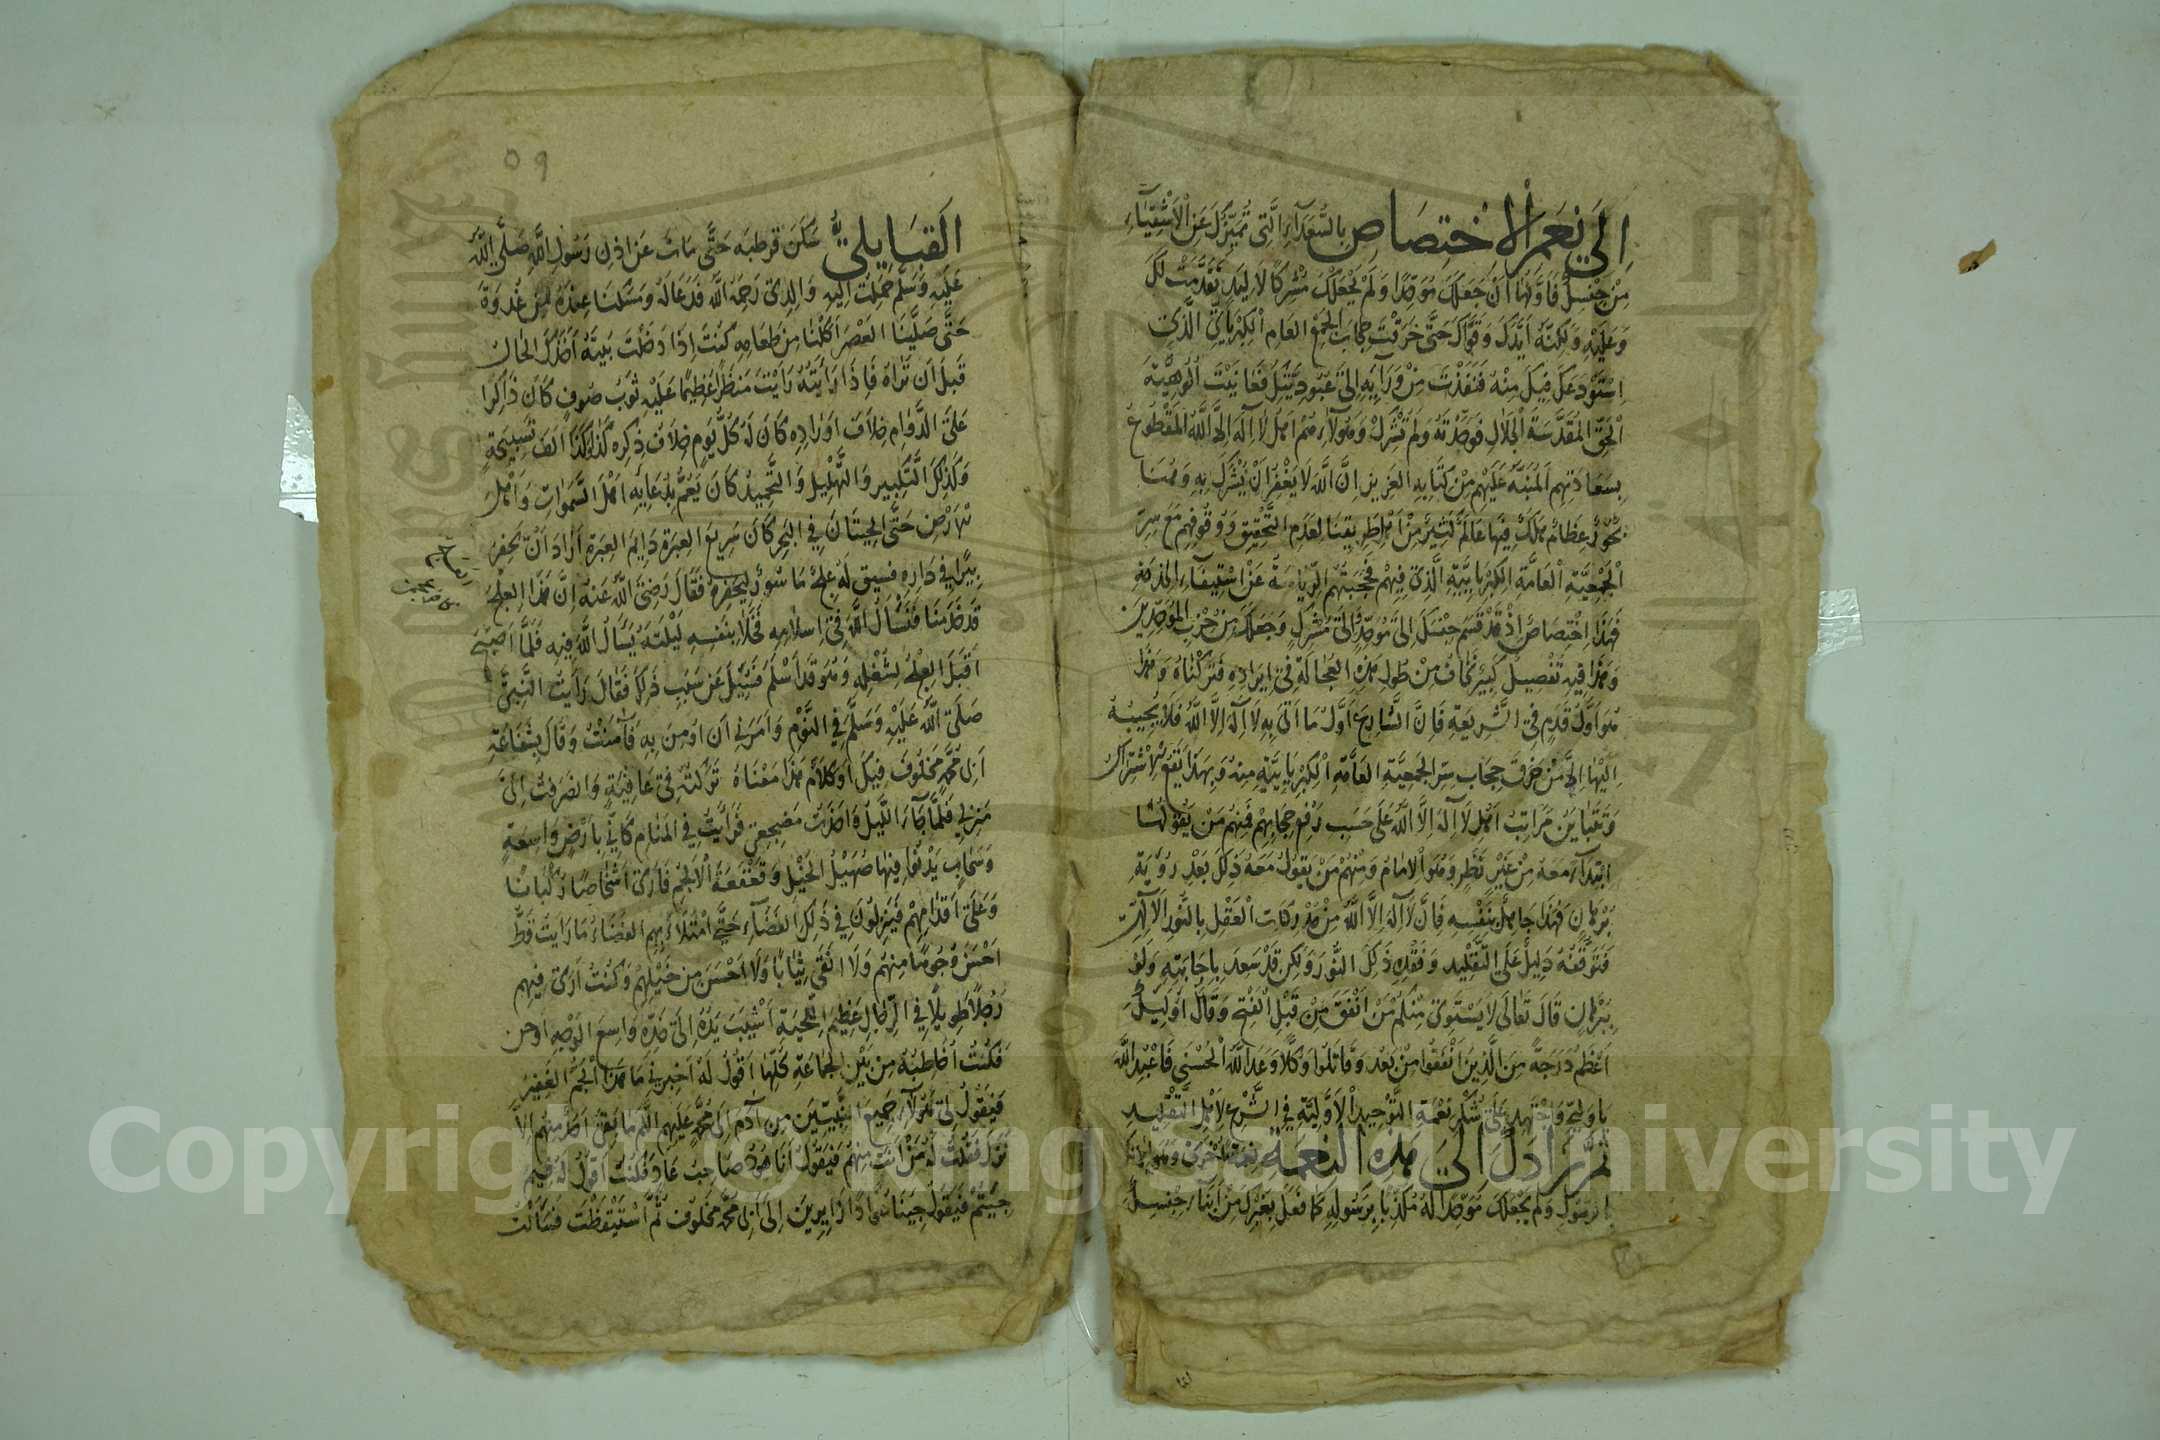 إلى نعم الاختصاص بالسعداء التي تميزك عن الأشقياء
من جنسك فأولها أن جعلك موحدا ولم يجعلك مشركا لا ليد تقدمت لك
وعليه ولكنه أيدك وقواك حتى خرقت حجاب الجمع العام الكبريائي الذي
استودعك فيك منه فنفذت من ورائه إلى عبوديتك فعاينت ألوهية
الحق المقدسة الجلال فوحدته ولم تشرك وهؤلاء هم أهل لا إله إلا الله المقطوع
بسعادتهم المنبه عليهم من كتابه العزيز إن الله لا يغفر أن يشرك به وهنا
بحور عظام هلك فيها عالم كثير من أهل طريقنا لعدم التحقيق ووقوفهم مع سر
الجمعية العامة الكبريائية الذي فيهم فحجبتهم الرياسة عن استيفاء الخدمة
فهذا اختصاص إذ قد قسم جنسك إلى موحد وإلى مشرك وجعلك من حزب الموحدين
وهذا فيه تفصيل كبير نخاف من طول هذه العجالة في إيراده فتركناه وهذا
هو أول قدم في الشريعة فإن الشارع أول ما أتى به لا إله إلا الله فلا يجيبه
إليها إلا من خرق حجاب سر الجمعية العامة الكبريائية منه وبهذا يقع الاشتراك
وتتباين مراتب أهل لا إله إلا الله على حسب رفع حجابهم فمنهم من يقولها
ابتداء معه من غير نظر وهو الإمام ومنهم من يقول معه ذلك بعد رؤية
برهان فهذا جاهل بنفسه فإن لا إله إلا الله من مدركات العقل بالنور الإلهي
فتوقفه دليل على التقليد وفقد ذلك النور ولكن قد سعد بإجابته ولو
ببرهان قال تعالى لا يستوي منكم من أنفق من قبل الفتح وقال أوليك
أعظم درجة من الذين أنفقوا من بعد وقاتلوا وكلا وعد الله الحسنى فاعبد الله
يا وليي واجتهد على شكر نعمة التوحيد الأولية في الشرع لأهل التقليد
ثم زادك إلى هذه النعمة نعمة أخرى
الرسول ولم يجعلك موحدا له مكذبا برسوله كما فعل بغيرك من أبناء جنسك
٥٩
القبايلي سكن قرطبه حتى مات عن إذن رسول الله صلى الله
عليه وسلم حملت إليه والدي رحمه الله فدعا له ومسكنا عنده من غدوة
حتى صلينا العصر أكلنا من طعامه كنت إذا دخلت بيته أخذك الحال
قبل أن تراه فإذا رأيته رأيت منظرا عظيما عليه ثوب صوف كان ذاكرا
على الدوام خلاف أوراده كان له كل يوم خلاف ذكره كذا وكذا ألف تسبيحة
وكذلك التكبير والتهليل والتحميد كان يعم بدعائه أهل السموات وأهل
الأرض حتى الحيتان في البحر كان سريع العبرة دايم العبرة أراد أن يحفر
بيرا في داره فسيق له علج مأسور ليحفره فقال رضي الله عنه إن هذا العلج
قد خدمنا فنسأل الله في إسلامه فخلا بنفسه ليلته يسأل الله فيه فلما أصبح
أقبل العلج لشغله وهو قد أسلم فسئل عن سبب ذلك فقال رأيت النبي
صلى الله عليه وسلم في النوم وأمرني أن أومن به فآمنت وقال بشفاعة
أبي محمد مخلوف فيك أو كلام هذا معناه تركته في عافية وانصرفت إلى
منزلي فلما جاء الليل وأخذت مضجعي فرأيت في المنام كأني بأرض واسعة
وسحاب يدنوا فيها صهيل الخيل وقعقعة الألجم فأرى أشخاصا ركبانا
وعلى أقدامهم فينزلون في ذلك الفضاء حتى امتلاء بهم الفضاء ما رأيت قط
أحسن وجوها منهم ولا أنقى ثيابا ولا أحسن من خيلهم وكنت أرى فيهم
رجلا طويلا في الرجال عظيم اللحية أشيب يده إلى خده واسع الوجه
فكنت أخاطبه من بين الجماعة كلها أقول له أخبرني ما هذا الجم الغفير
فيقول لي هؤلاء جميع النبيين من آدم إلى محمد عليهم السلم ما بقي أحد منهم إلا
نزل فقلت له من أنت منهم فيقول أنا هود صاحب عاد فكنت أقول له فيم
جيتم فيقول جينا عوادا زايرين إلى أبي محمد مخلوف ثم استيقظت فسألت
Copyright © King Saud University